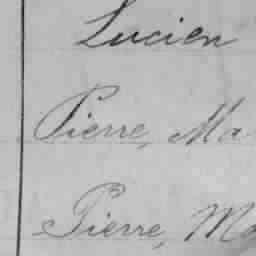 Lucien
Pierre, Ma
Pierre, Ma